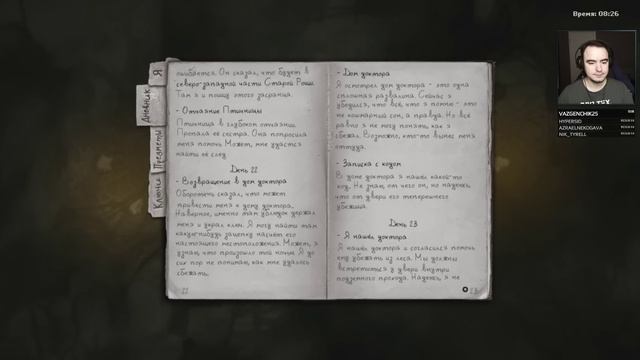 Время: 08:26
VAZGENCHIK25
HYPERSIO
AZRAELNEKOGAVA
NIK_TYRELL
Я
Дневник
Предметы
Ключи
ошибается. Он сказал, что будет в
северо-западной части Старой Рощи.
Там я и поищу этого засранца.
- Отчаяние Птичницы
Птичница в глубоком отчаянии.
Пропала её сестра. Она попросила
меня помочь. Может, мне удастся
найти её след.
День 22
- Возвращение в дом доктора
Оборотень сказал, что может
привести меня к дому доктора.
Наверное, именно там ублюдок держал
меня и украл ключ. Я могу найти там
какую-нибудь зацепку насчёт его
настоящего местоположения. Может, я
узнаю, что произошло той ночью. Я до
сих пор не понимаю, как мне удалось
сбежать.
22
- Дом доктора
Я осмотрел дом доктора - это одна
сплошная развалина. Сейчас я
убедился, что всё, что я помню - это
не кошмарный сон, а правда. Но всё
равно я не могу понять, как я
сбежал. Возможно, кто-то вынес меня
оттуда.
- Записка с кодом
В доме доктора я нашёл какой-то
код. Не знаю, от чего он, но надеюсь,
что от двери его теперешнего
убежища.
День 23
- Я нашёл доктора
Я нашёл доктора и согласился помочь
ему убежать из леса. Мы должны
встретиться у двери внутри
подземного прохода. Надеюсь, я не
23